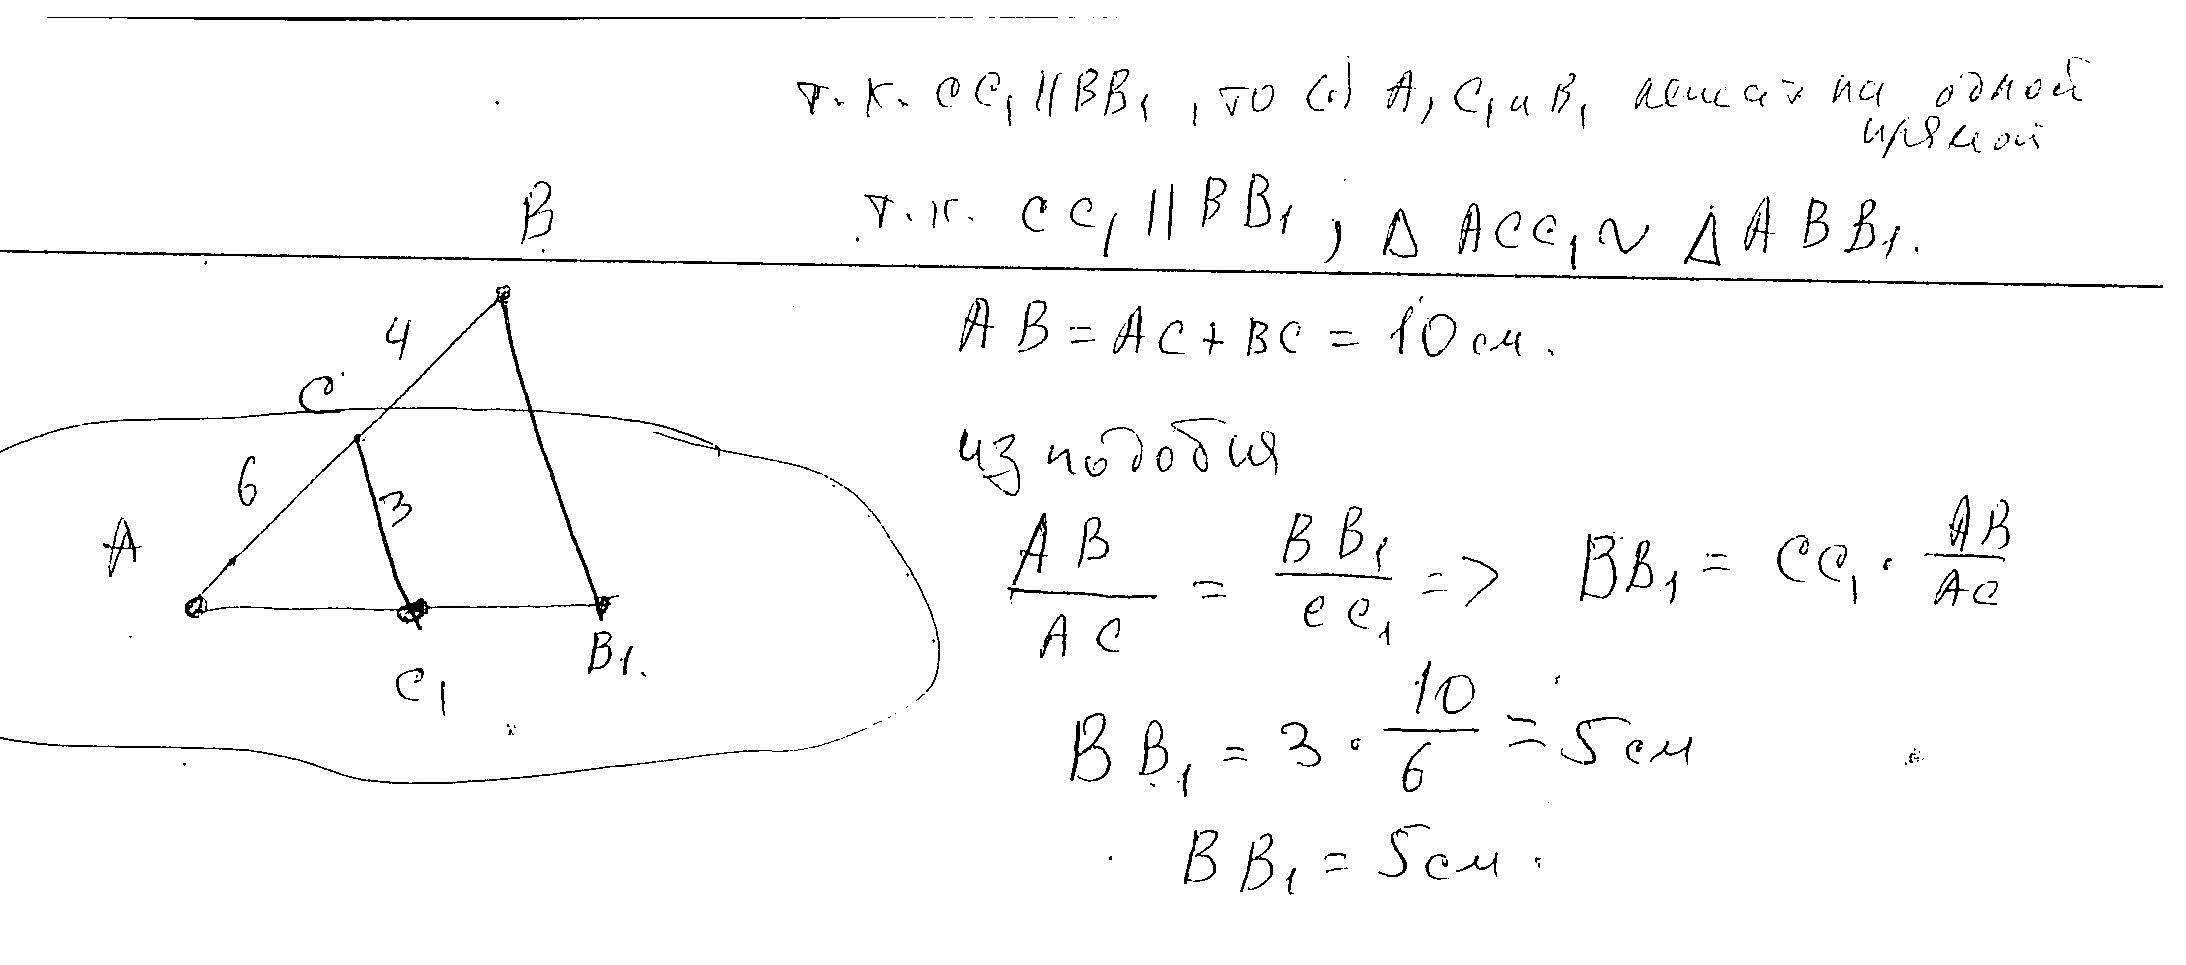 т.к. CC₁ || BB₁, то (·) A, C₁ и B₁ лежат на одной
прямой
т.к. CC₁ || BB₁, Δ ACC₁ ~ Δ ABB₁.
B
4
C
6
3
A
C₁
B₁.
AB = AC + BC = 10 см.
из подобия
AB/AC = BB₁/CC₁ => BB₁ = CC₁ · AB/AC
BB₁ = 3 · 10/6 = 5 см
BB₁ = 5 см.